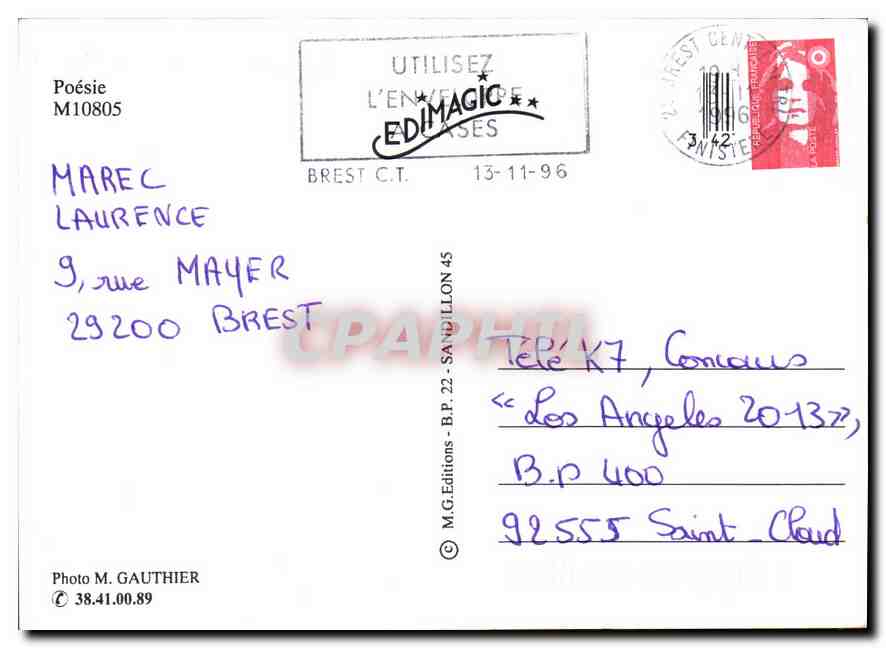 Poésie
M10805
UTILISEZ
L'ENVELOPPE
A CASES
EDIMAGIC
BREST C.T. 13-11-96
BREST CENTRAL
13-11
1996
FINISTERE
3 42
REPUBLIQUE FRANÇAISE
LA POSTE
MAREC
LAURENCE
9, rue MAYER
29200 BREST
CPAPHIL
© M.G.Editions - B.P. 22 - SANDILLON 45
Télé K7, Concours
“Los Angeles 2013”,
B.P 400
92555 Saint-Cloud
Photo M. GAUTHIER
✆ 38.41.00.89